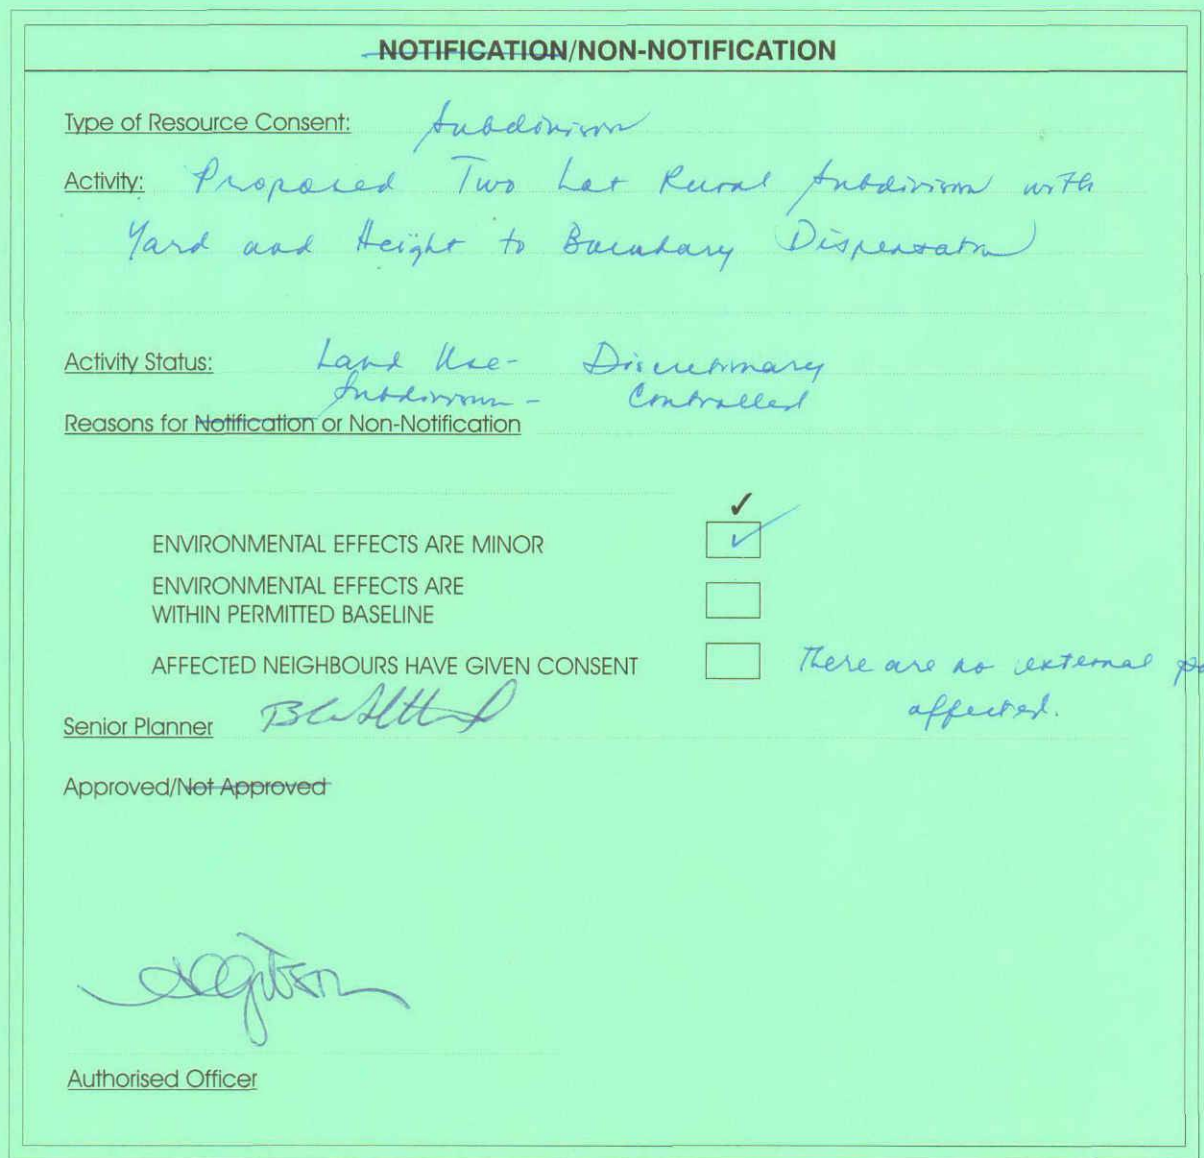 NOTIFICATION/NON-NOTIFICATION
Type of Resource Consent: Subdivision
Activity: Proposed Two Lot Rural Subdivision with
Yard and Height to Boundary Dispensation
Activity Status: Land Use - Discretionary
Subdivision - Controlled
Reasons for Notification or Non-Notification
✓
ENVIRONMENTAL EFFECTS ARE MINOR ✓
ENVIRONMENTAL EFFECTS ARE
WITHIN PERMITTED BASELINE
AFFECTED NEIGHBOURS HAVE GIVEN CONSENT There are no external
affected.
Senior Planner
Approved/Not Approved
Authorised Officer